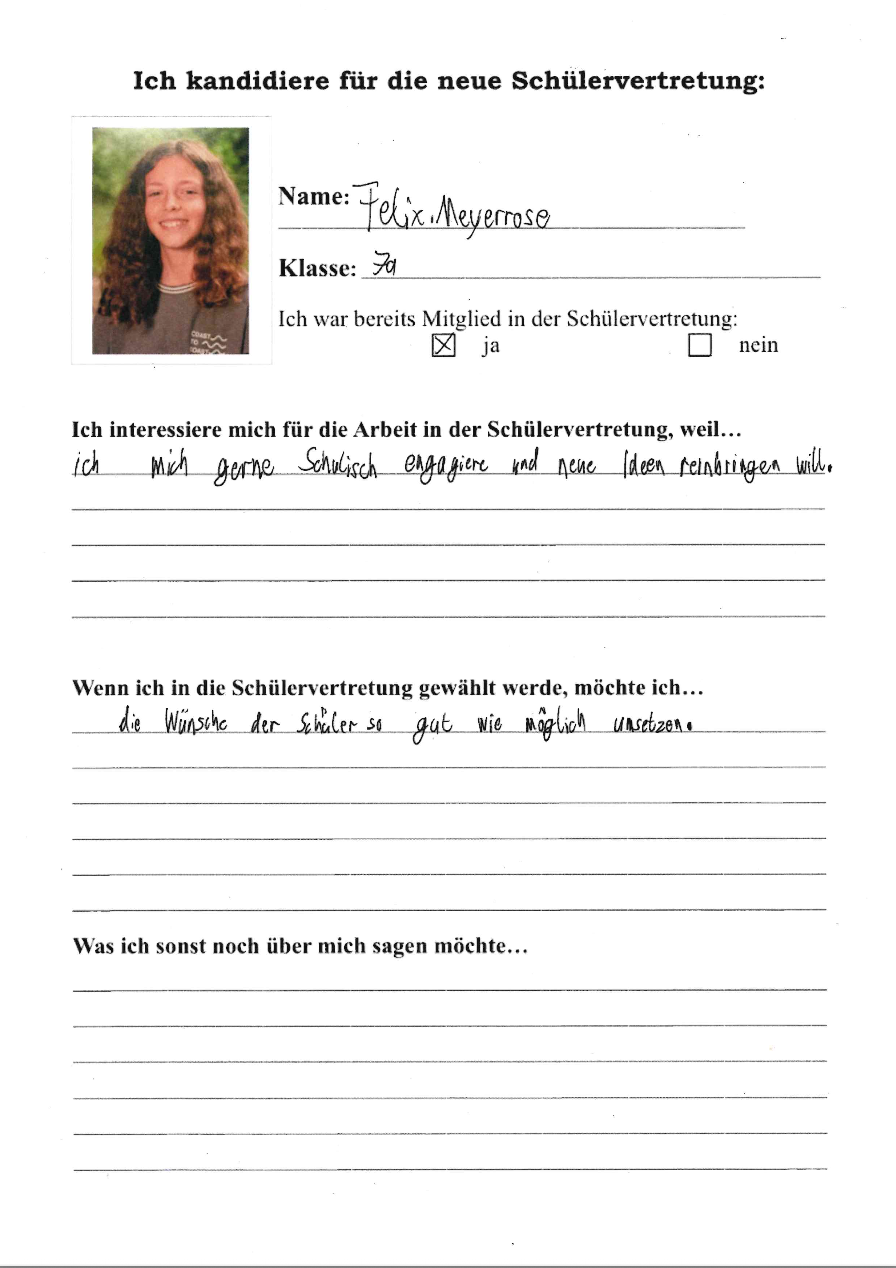 Ich kandidiere für die neue Schülervertretung:
COAST
TO
COAST
Name: Felix Meyerrose
Klasse: 7a
Ich war bereits Mitglied in der Schülervertretung:
☒ ja ☐ nein
Ich interessiere mich für die Arbeit in der Schülervertretung, weil…
ich mich gerne Schulisch engagiere und neue Ideen reinbringen will.
Wenn ich in die Schülervertretung gewählt werde, möchte ich…
die Wünsche der Schüler so gut wie möglich umsetzen.
Was ich sonst noch über mich sagen möchte…